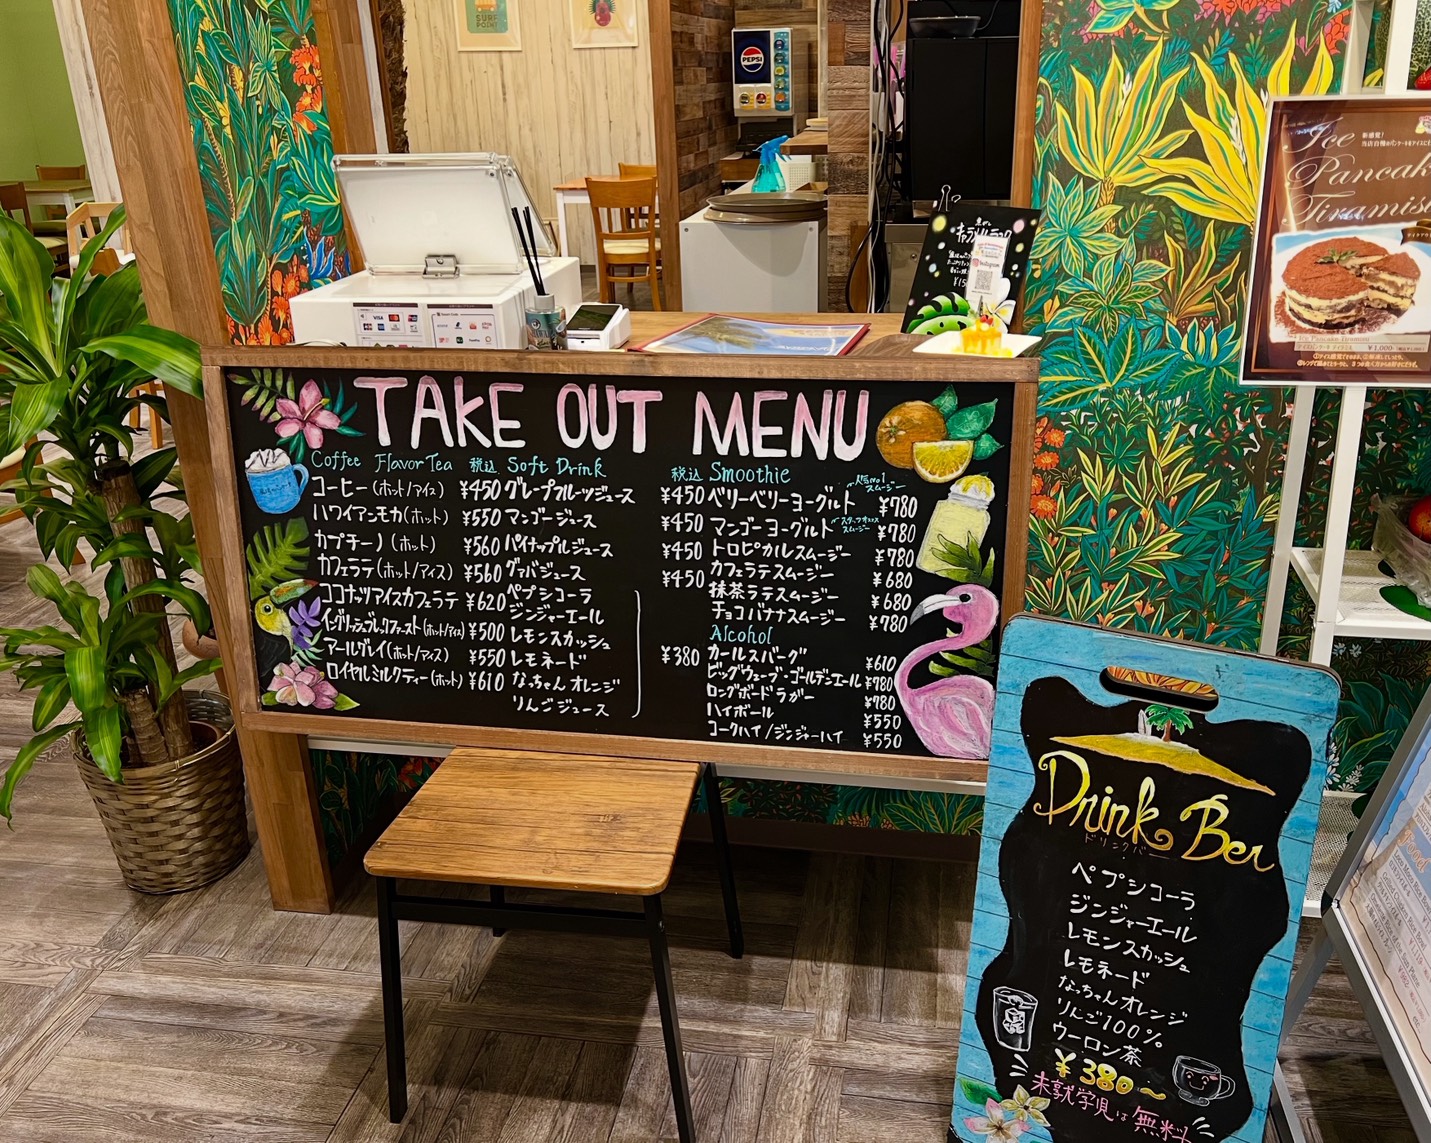 SURF
POINT
PEPSI
TAKE OUT MENU
Coffee Flavor Tea 税込
コーヒー(ホット/アイス) ¥450
ハワイアンモカ(ホット) ¥550
カプチーノ(ホット) ¥560
カフェラテ(ホット/アイス) ¥560
ココナッツアイスカフェラテ ¥620
イングリッシュブレックファースト(ホット/アイス) ¥500
アールグレイ(ホット/アイス) ¥550
ロイヤルミルクティー(ホット) ¥610
Soft Drink 税込
グレープフルーツジュース ¥450
マンゴージュース ¥450
パイナップルジュース ¥450
グァバジュース ¥450
ペプシコーラ
ジンジャーエール
レモンスカッシュ
レモネード ¥380
なっちゃんオレンジ
りんごジュース
Smoothie
人気No1
スムージー
ベリーベリーヨーグルト ¥780
マンゴーヨーグルト ¥780
スタッフオススメ
スムージー
トロピカルスムージー ¥780
カフェラテスムージー ¥680
抹茶ラテスムージー ¥680
チョコバナナスムージー ¥780
Alcohol
カールスバーグ ¥610
ビッグウェーブ・ゴールデンエール ¥780
ロングボードラガー ¥780
ハイボール ¥550
コークハイ/ジンジャーハイ ¥550
VISA
Instagram
新感覚!
当店自慢のパンケーキをアイスに
Ice
Pancak
Tiramis
Ice Pancake Tiramisu
¥1,000
Drink Bar
ドリンクバー
ペプシコーラ
ジンジャーエール
レモンスカッシュ
レモネード
なっちゃんオレンジ
りんご100%
ウーロン茶
¥380~
未就学児は無料!
Food